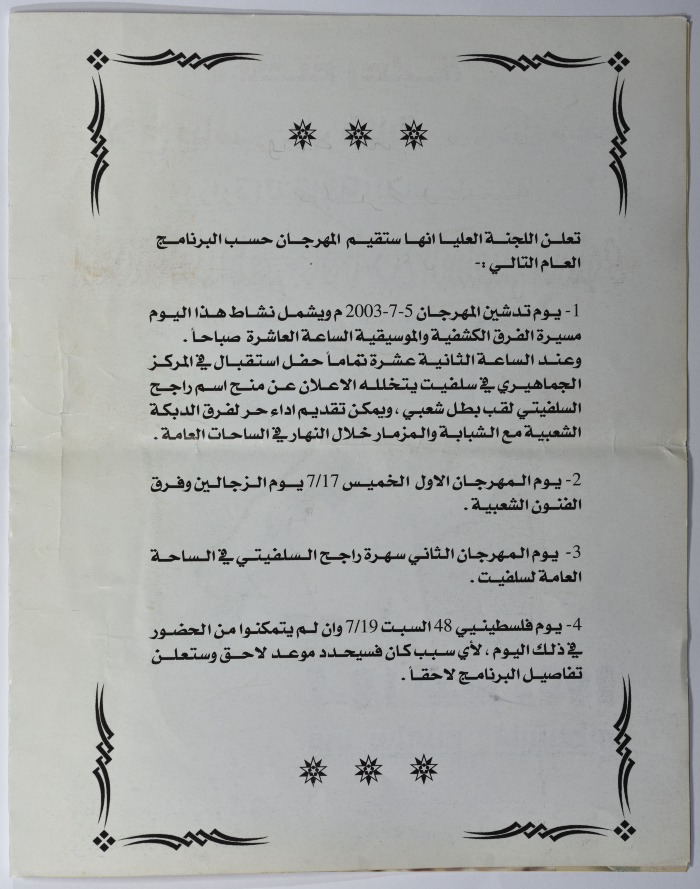 تعلن اللجنة العليا انها ستقيم المهرجان حسب البرنامج
العام التالي :-
1- يوم تدشين المهرجان 5-7-2003 م ويشمل نشاط هذا اليوم
مسيرة الفرق الكشفية والموسيقية الساعة العاشرة صباحاً .
وعند الساعة الثانية عشرة تماماً حفل استقبال في المركز
الجماهيري في سلفيت يتخلله الاعلان عن منح اسم راجح
السلفيتي لقب بطل شعبي ، ويمكن تقديم اداء حر لفرق الدبكة
الشعبية مع الشبابة والمزمار خلال النهار في الساحات العامة .
2- يوم المهرجان الاول الخميس 7/17 يوم الزجالين وفرق
الفنون الشعبية .
3- يوم المهرجان الثاني سهرة راجح السلفيتي في الساحة
العامة لسلفيت .
4- يوم فلسطينيي 48 السبت 7/19 وان لم يتمكنوا من الحضور
في ذلك اليوم ، لأي سبب كان فسيحدد موعد لاحق وستعلن
تفاصيل البرنامج لاحقاً .